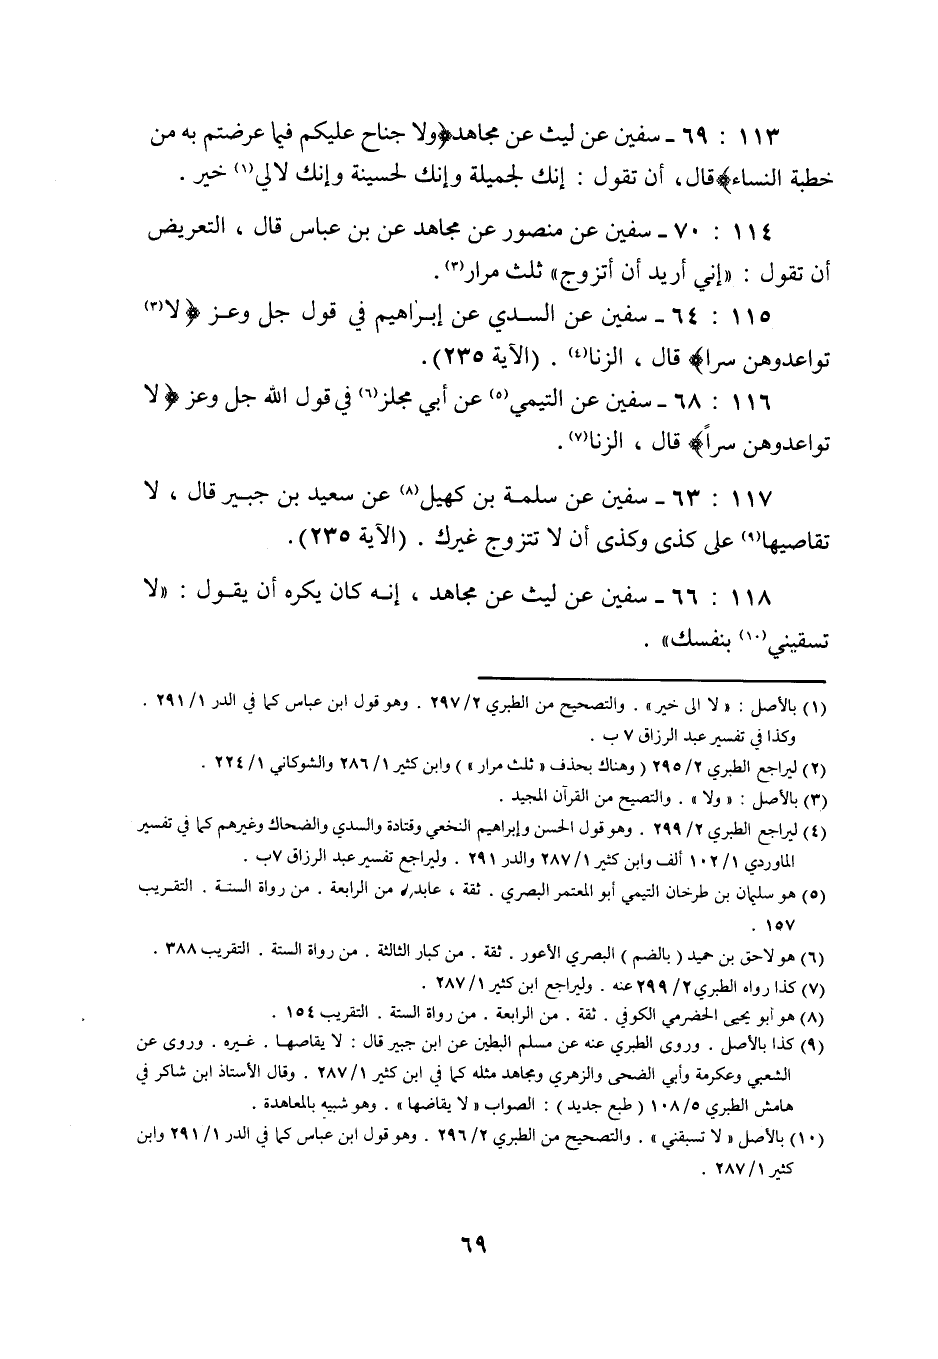 ١١٣ : ٦٩ ـ سفين عن ليث عن مجاهد ﴿ولا جناح عليكم فيما عرضتم به من
خطبة النساء﴾ قال، أن تقول : إنك لجميلة وإنك لحسينة وإنك لالي(١) خير .
١١٤ : ٧٠ ـ سفين عن منصور عن مجاهد عن بن عباس قال ، التعريض
أن تقول : «إني أريد أن أتزوج» ثلث مرار(٣).
١١٥ : ٦٤ ـ سفين عن السدي عن إبرٰاهيم في قول جل وعز ﴿لا(٣)
تواعدوهن سرا﴾ قال ، الزنا(٤) . (الآية ٢٣٥).
١١٦ : ٦٨ ـ سفين عن التيمي(٥) عن أبي مجلز(٦) في قول الله جل وعز ﴿لا
تواعدوهن سراً﴾ قال ، الزنا(٧).
١١٧ : ٦٣ ـ سفين عن سلمة بن كهيل(٨) عن سعيد بن جبير قال ، لا
تقاصيها(٩) على كذى وكذى أن لا تتزوج غيرك . (الآية ٢٣٥).
١١٨ : ٦٦ ـ سفين عن ليث عن مجاهد ، إنه كان يكره أن يقول : «لا
تسقيني(١٠) بنفسك» .
(١) بالأصل : «لا الى خير» . والتصحيح من الطبري ٢/ ٢٩٧ . وهو قول ابن عباس كما في الدر ١/ ٢٩١ .
وكذا في تفسير عبد الرزاق ٧ ب .
(٢) ليراجع الطبري ٢/ ٢٩٥ ( وهناك بحذف « ثلث مرار » ) وابن كثير ١/ ٢٨٦ والشوكاني ١/ ٢٢٤ .
(٣) بالأصل : « ولا » . والتصيح من القرآن المجيد .
(٤) ليراجع الطبري ٢/ ٢٩٩ . وهو قول الحسن وإبراهيم النخعي وقتادة والسدي والضحاك وغيرهم كما في تفسير
الماوردي ١/ ١٠٢ ألف وابن كثير ١/ ٢٨٧ والدر ٢٩١ . وليراجع تفسير عبد الرزاق ٧ب .
(٥) هو سليمان بن طرخان التيمي أبو المعتمر البصري . ثقة ، عابد، من الرابعة . من رواة الستة . التقريب
١٥٧ .
(٦) هو لاحق بن حميد ( بالضم ) البصري الأعور . ثقة . من كبار الثالثة . من رواة الستة . التقريب ٣٨٨ .
(٧) كذا رواه الطبري ٢/ ٢٩٩ عنه . وليراجع ابن كثير ١/ ٢٨٧ .
(٨) هو أبو يحيى الحضرمي الكوفي . ثقة . من الرابعة . من رواة الستة . التقريب ١٥٤ .
(٩) كذا بالأصل . وروى الطبري عنه عن مسلم البطين عن ابن جبير قال : لا يقاصها . غيره . وروى عن
الشعبي وعكرمة وأبي الضحى والزهري ومجاهد مثله كما في ابن كثير ١/ ٢٨٧ . وقال الأستاذ ابن شاكر في
هامش الطبري ٥/ ١٠٨ ( طبع جديد ) : الصواب « لا يقاضها » . وهو شبيه بالمعاهدة .
(١٠) بالأصل « لا تسبقني » . والتصحيح من الطبري ٢/ ٢٩٦ . وهو قول ابن عباس كما في الدر ١/ ٢٩١ وابن
كثير ١/ ٢٨٧ .
٦٩